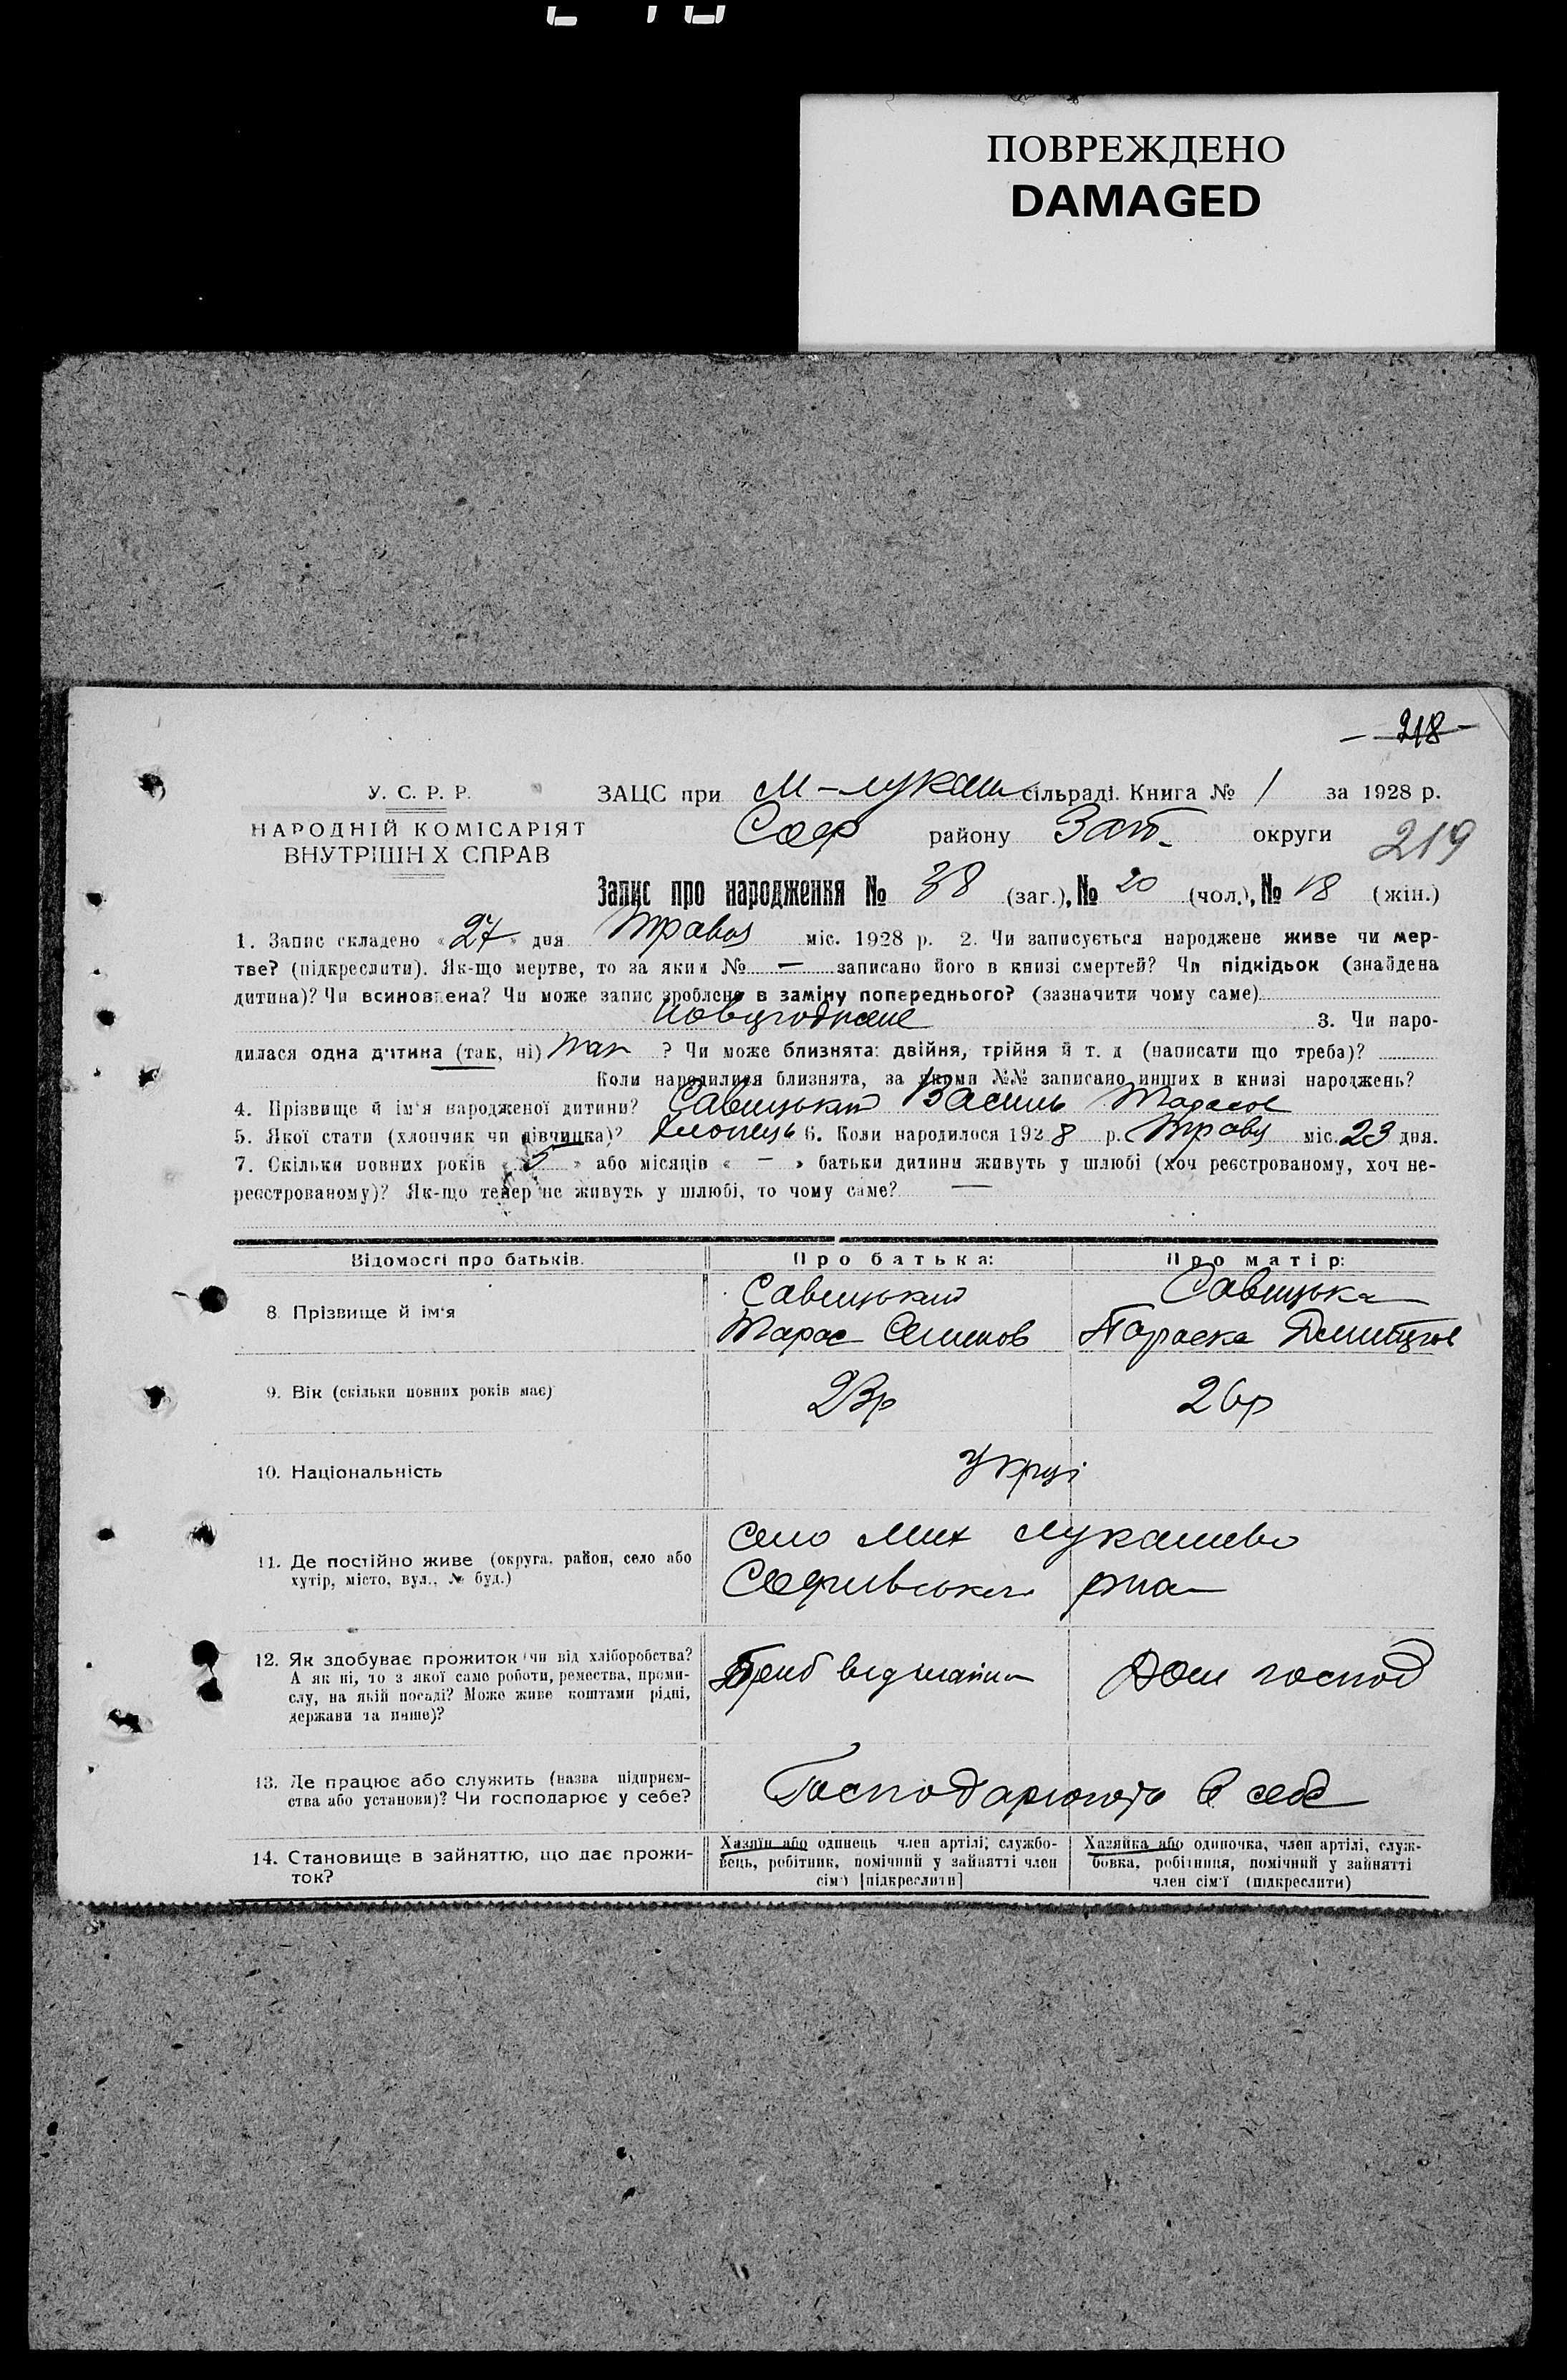 ПОВРЕЖДЕНО
DAMAGED
218
У. С. Р. Р.
НАРОДНІЙ КОМІСАРІЯТ
ВНУТРІШН Х СПРАВ
ЗАЦС при М-Лукаш сільраді. Книга № 1 за 1928 р.
Соф району Зап. округи
219
Запис про народження № 38 (заг.), № 20 (чол.), № 18 (жін.)
1. Запис складено «27» дня Травня міс. 1928 р. 2. Чи записується народжене живе чи мер-
тве? (підкреслити). Як-що мертве, то за яким № — записано його в книзі смертей? Чи підкідьок (знайдена
дитина)? Чи всиновлена? Чи може запис зроблено в заміну попереднього? (зазначити чому саме)
3. Чи наро-
дилася одна дитина (так, ні) так ? Чи може близнята: двійня, трійня й т. д (написати що треба)?
Коли народилися близнята, за якими №№ записано инших в книзі народжень?
4. Прізвище й ім'я народженої дитини? Савицький Василь Тарасов
5. Якої стати (хлопчик чи дівчинка)? Хлопець 6. Коли народилося 1928 р. Травня міс. 23 дня.
7. Скільки повних років « 5 » або місяців « — » батьки дитини живуть у шлюбі (хоч реєстрованому, хоч не-
реєстрованому)? Як-що тепер не живуть у шлюбі, то чому саме? —
Відомості про батьків.
Про батька:
Про матір:
8. Прізвище й ім'я
Савицький
Тарас Семенов
Савицька
Параска Дмитров
9. Вік (скільки повних років має)
23р
26р
10. Національність
Укрці
11. Де постійно живе (округа, район, село або
хутір, місто, вул., № буд.)
Село Мих Лукашево
Софиївського рна
12. Як здобуває прожиток (чи від хліборобства?
А як ні, то з якої саме роботи, ремества, проми-
слу, на якій посаді? Може живе коштами рідні,
держави та инше)?
Дом господ
13. Де працює або служить (назва підприєм-
ства або установи)? Чи господарює у себе?
Господарюють в себе
14. Становище в зайняттю, що дає прожи-
ток?
Хазяїн або одинець член артілі; службо-
вець, робітник, помічний у зайнятті член
сім'ї [підкреслити]
Хазяйка або одиночка, член артілі, служ-
бовка, робітниця, помічний у зайнятті
член сім'ї (підкреслити)